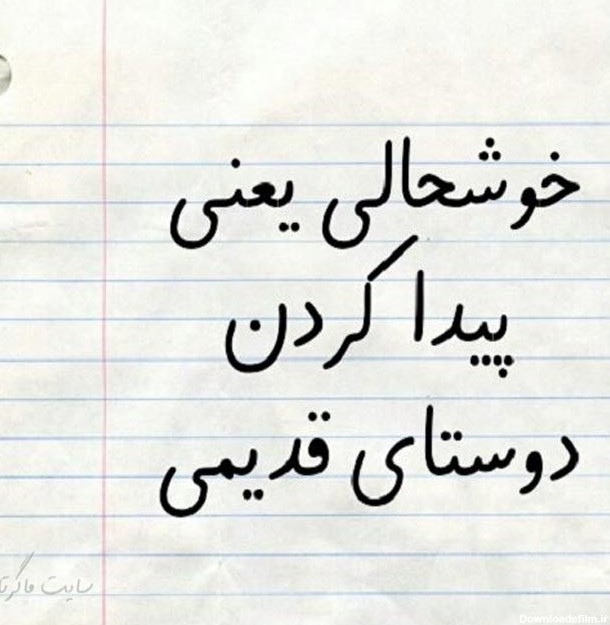 خوشحالی یعنی
پیدا کردن
دوستای قدیمی
سایت
Downloadefilm.ir